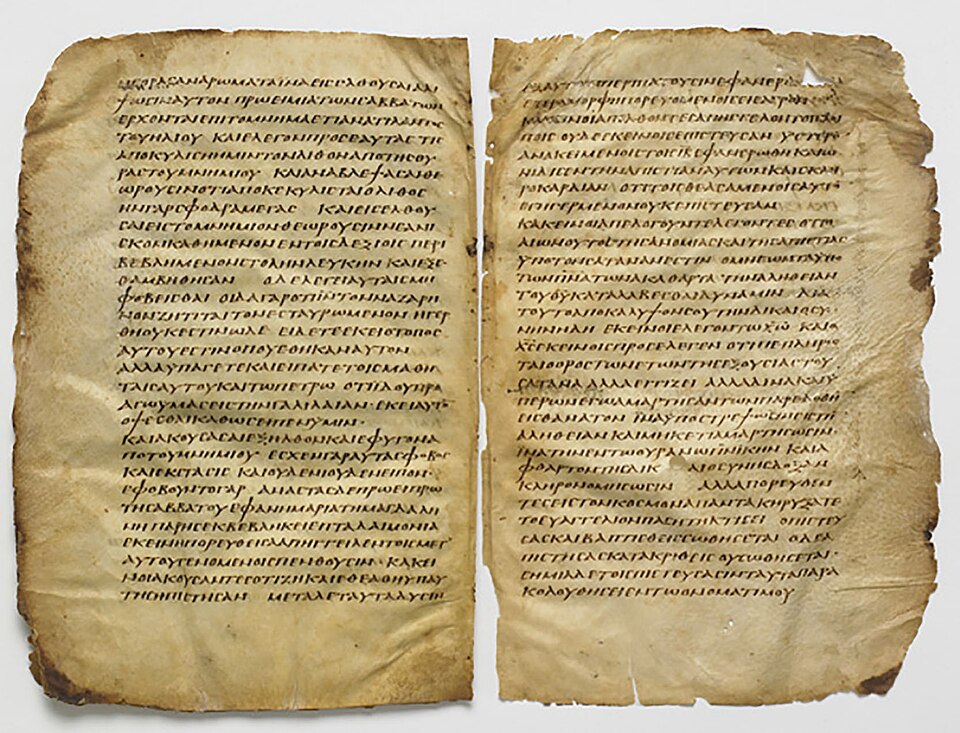 ΟΡΑϹΑΝΑΡΩΜΑΤΑΪΝΑΕΙϹΕΛΘΟΥϹΑΙΑΛΙ
ΨΩϹΙΝΑΥΤΟΝ ΠΡΩΕΙΜΙΑΤΩΝϹΑΒΒΑΤΩΝ
ΕΡΧΟΝΤΑΙΕΠΙΤΟΜΝΗΜΑΕΤΙΑΝΑΤΙΛΑΝΤΟϹ
ΤΟΥΗΛΙΟΥ ΚΑΙΕΛΕΓΟΝΠΡΟϹΕΑΥΤΑϹΤΙϹ
ΑΠΟΚΥΛΙϹΗΗΜΙΝΤΟΝΛΙΘΟΝΑΠΟΤΗϹΘΥ
ΡΑϹΤΟΥΜΝΗΜΙΟΥ ΚΑΙΑΝΑΒΛΕΨΑϹΑΙΘΕ
ΩΡΟΥϹΙΝΟΤΙΑΠΟΚΕΚΥΛΙϹΤΑΙΟΛΙΘΟϹ
ΗΝΓΑΡϹΦΟΔΡΑΜΕΓΑϹ ΚΑΙΕΙϹΕΛΘΟΥ
ϹΑΙΕΙϹΤΟΜΝΗΜΙΟΝΘΕΩΡΟΥϹΙΝΝΕΑΝΙ
ϹΚΟΝΚΑΘΗΜΕΝΟΝΕΝΤΟΙϹΔΕΞΙΟΙϹΠΕΡΙ
ΒΕΒΛΗΜΕΝΟΝϹΤΟΛΗΝΛΕΥΚΗΝ ΚΑΙΕΞΕ
ΘΑΜΒΗΘΗϹΑΝ ΟΔΕΛΕΓΕΙΑΥΤΑΙϹΜΗ
ΦΟΒΕΙϹΘΑΙ ΟΙΔΑΓΑΡΟΤΙΙΝΤΟΝΝΑΖΑΡΗ
ΝΟΝΖΗΤΙΤΑΙΤΟΝΕϹΤΑΥΡΩΜΕΝΟΝ ΗΓΕΡ
ΘΗΟΥΚΕϹΤΙΝΩΔΕ ΕΙΔΕΤΕΕΚΕΙΟΤΟΠΟϹ
ΑΥΤΟΥΕϹΤΙΝΟΠΟΥΕΘΗΚΑΝΑΥΤΟΝ
ΑΛΛΑΥΠΑΓΕΤΕΚΑΙΕΙΠΑΤΕΤΟΙϹΜΑΘΗ
ΤΑΙϹΑΥΤΟΥΚΑΙΤΩΠΕΤΡΩ ΟΤΙΪΔΟΥΠΡΟ
ΑΓΩΥΜΑϹΕΙϹΤΗΝΓΑΛΙΛΑΙΑΝ·ΕΚΕΙΑΥΤΟ
ΟΨΕϹΘΑΙΚΑΘΩϹΕΙΠΕΝΥΜΙΝ·
ΚΑΙΑΚΟΥϹΑϹΑΙΕΞΗΛΘΟΝΚΑΙΕΦΥΓΟΝΑ
ΠΟΤΟΥΜΝΗΜΙΟΥ ΕϹΧΕΝΓΑΡΑΥΤΑϹΦΟΒΟϹ
ΚΑΙΕΚϹΤΑϹΙϹ ΚΑΙΟΥΔΕΝΙΟΥΔΕΝΕΙΠΟΝ·
ΕΦΟΒΟΥΝΤΟΓΑΡ ΑΝΑϹΤΑϹΔΕΠΡΩΕΙΠΡΩ
ΤΗϹΑΒΒΑΤΟΥΕΦΑΝΗΜΑΡΙΑΤΗΜΑΓΔΑΛΗ
ΝΗΠΑΡΗϹΕΚΒΕΒΛΗΚΕΙΕΠΤΑΔΑΙΜΟΝΙΑ
ΕΚΕΙΝΗΠΟΡΕΥΘΕΙϹΑΠΗΓΓΕΙΛΕΝΤΟΙϹΜΕΤ
ΑΥΤΟΥΓΕΝΟΜΕΝΟΙϹΠΕΝΘΟΥϹΙΝ· ΚΑΚΕΙ
ΝΟΙΑΚΟΥϹΑΝΤΕϹΟΤΙΖΗΚΑΙΕΘΕΑΘΗΥΠΑΥ
ΤΗϹΗΠΙϹΤΗϹΑΝ ΜΕΤΑΔΕΤΑΥΤΑΔΥϹΙΝ
ΕΞΑΥΤΩΝΠΕΡΙΠΑΤΟΥϹΙΝΕΦΑΝΕΡΩ
ΕΤΕΡΑΜΟΡΦΗΠΟΡΕΥΟΜΕΝΟΙϹΕΙϹΑΓΡΟΝ
ΚΑΚΕΙΝΟΙΑΠΕΛΘΟΝΤΕϹΑΝΗΓΓΕΛΟΝΤΟΙϹΛΟΙ
ΠΟΙϹ ΟΥΔΕΕΚΕΙΝΟΙϹΕΠΙϹΤΕΥϹΑΝ ΥϹΤΕΡΟ
ΑΝΑΚΕΙΜΕΝΟΙϹΤΟΙϹΙΑΕΦΑΝΕΡΩΘΗΚΑΙΩ
ΝΙΔΙϹΕΝΤΗΝΑΠΙϹΤΙΑΝΑΥΤΩΝΚΑΙϹΚΛΗ
ΡΟΚΑΡΔΙΑΝ ΟΤΙΤΟΙϹΘΕΑϹΑΜΕΝΟΙϹΑΥΤΟ
ΕΓΗΓΕΡΜΕΝΟΝΟΥΚΕΠΙϹΤΕΥϹΑΝ
ΚΑΚΕΙΝΟΙΑΠΕΛΟΓΟΥΝΤΕΛΕΓΟΝΤΕϹΟΤΙΟ
ΑΙΩΝΟΥΤΟϹΤΗϹΑΝΟΜΙΑϹΚΑΙΤΗϹΑΠΙϹΤΙΑϹ
ΥΠΟΤΟΝϹΑΤΑΝΑΝΕϹΤΙΝ ΟΜΗΕΩΝΤΑΥΠΟ
ΤΩΝΠΝΑΤΩΝΑΚΑΘΑΡΤΑ ΤΗΝΑΛΗΘΕΙΑΝ
ΤΟΥΘΥΚΑΤΑΛΑΒΕϹΘΑΙΔΥΝΑΜΙΝ ΔΙΑ
ΤΟΥΤΟΑΠΟΚΑΛΥΨΟΝϹΟΥΤΗΝΔΙΚΑΙΟϹΥ
ΝΗΝΗΔΗ ΕΚΕΙΝΟΙΕΛΕΓΟΝΤΩΧΩ ΚΑΙΟ
ΧϹΕΚΕΙΝΟΙϹΠΡΟϹΕΛΕΓΕΝ ΟΤΙΠΕΠΛΗΡΩ
ΤΑΙΟΟΡΟϹΤΩΝΕΤΩΝΤΗϹΕΞΟΥϹΙΑϹΤΟΥ
ϹΑΤΑΝΑ ΑΛΛΑΕΓΓΙΖΕΙ ΑΛΛΑΔΙΝΑΚΑΙΫ
ΠΕΡΩΝΕΓΩΑΜΑΡΤΗϹΑΝΤΩΝΠΑΡΕΔΟΘΗ
ΕΙϹΘΑΝΑΤΟΝ ΪΝΑΫΠΟϹΤΡΕΨΩϹΙΝΕΙϹΤΗ
ΑΛΗΘΕΙΑΝ ΚΑΙΜΗΚΕΤΙΑΜΑΡΤΗϹΩϹΙΝ
ΙΝΑΤΗΝΕΝΤΩΟΥΡΑΝΩΠΝΙΚΗΝ ΚΑΙΑ
ΦΘΑΡΤΟΝΤΗϹΔΙΚΑΙΟϹΥΝΗϹΔΟΞΑΝ
ΚΛΗΡΟΝΟΜΗϹΩϹΙΝ ΑΛΛΑΠΟΡΕΥΘΕΝ
ΤΕϹΕΙϹΤΟΝΚΟϹΜΟΝΑΠΑΝΤΑΚΗΡΥΞΑΤΕ
ΤΟΕΥΑΓΓΕΛΙΟΝΠΑϹΗΤΗΚΤΙϹΕΙ ΟΠΙϹΤΕΥ
ϹΑϹΚΑΙΒΑΠΤΙϹΘΕΙϹϹΩΘΗϹΕΤΑΙ ΟΔΕΑ
ΠΙϹΤΗϹΑϹΚΑΤΑΚΡΙΘΕΙϹΟΥϹΩΘΗϹΕΤΑΙ·
ϹΗΜΙΑΔΕΤΟΙϹΠΙϹΤΕΥϹΑϹΙΝΤΑΥΤΑΠΑΡΑ
ΚΟΛΟΥΘΗϹΕΙΕΝΤΩΟΝΟΜΑΤΙΜΟΥ